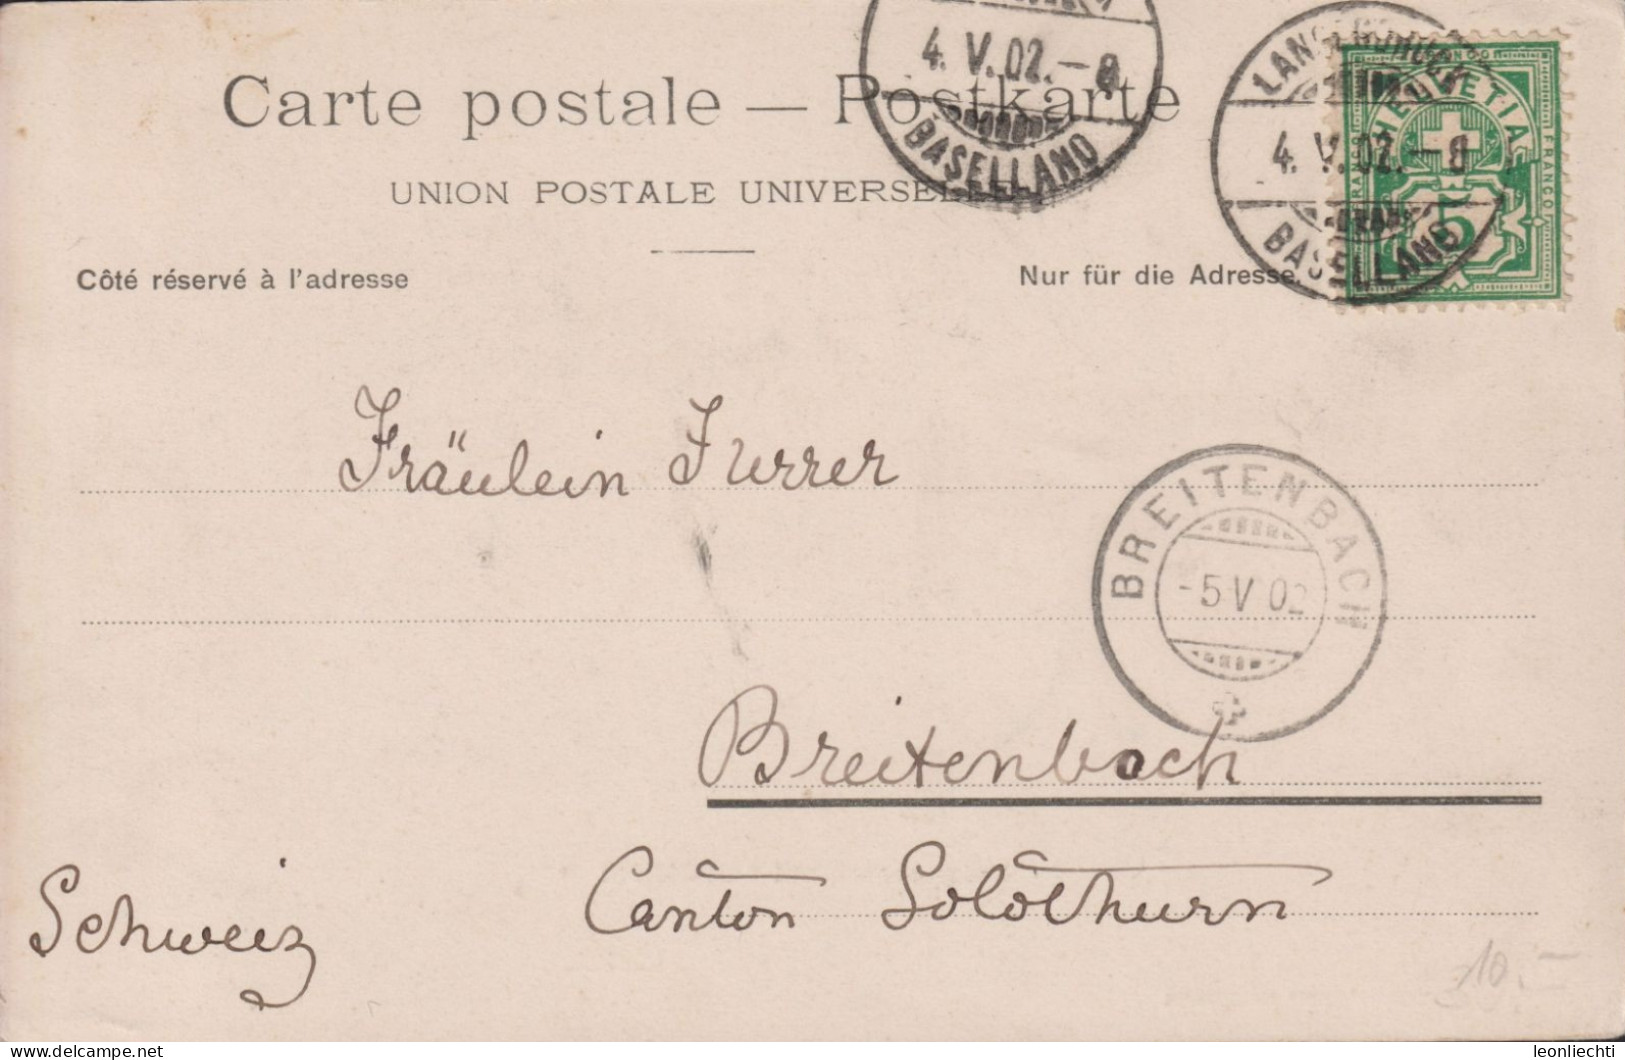 4. V. 02. – 8
BASELLAND
LANGENBRUCK
4. V. 02. – 8
BASELLAND
HELVETIA
FRANCO
5
Carte postale — Postkarte
UNION POSTALE UNIVERSELLE
Côté réservé à l'adresse
Nur für die Adresse.
Fräulein Furrer
BREITENBACH
-5 V 02
Breitenbach
Canton Solothurn
Schweiz
10.–
leonliechti